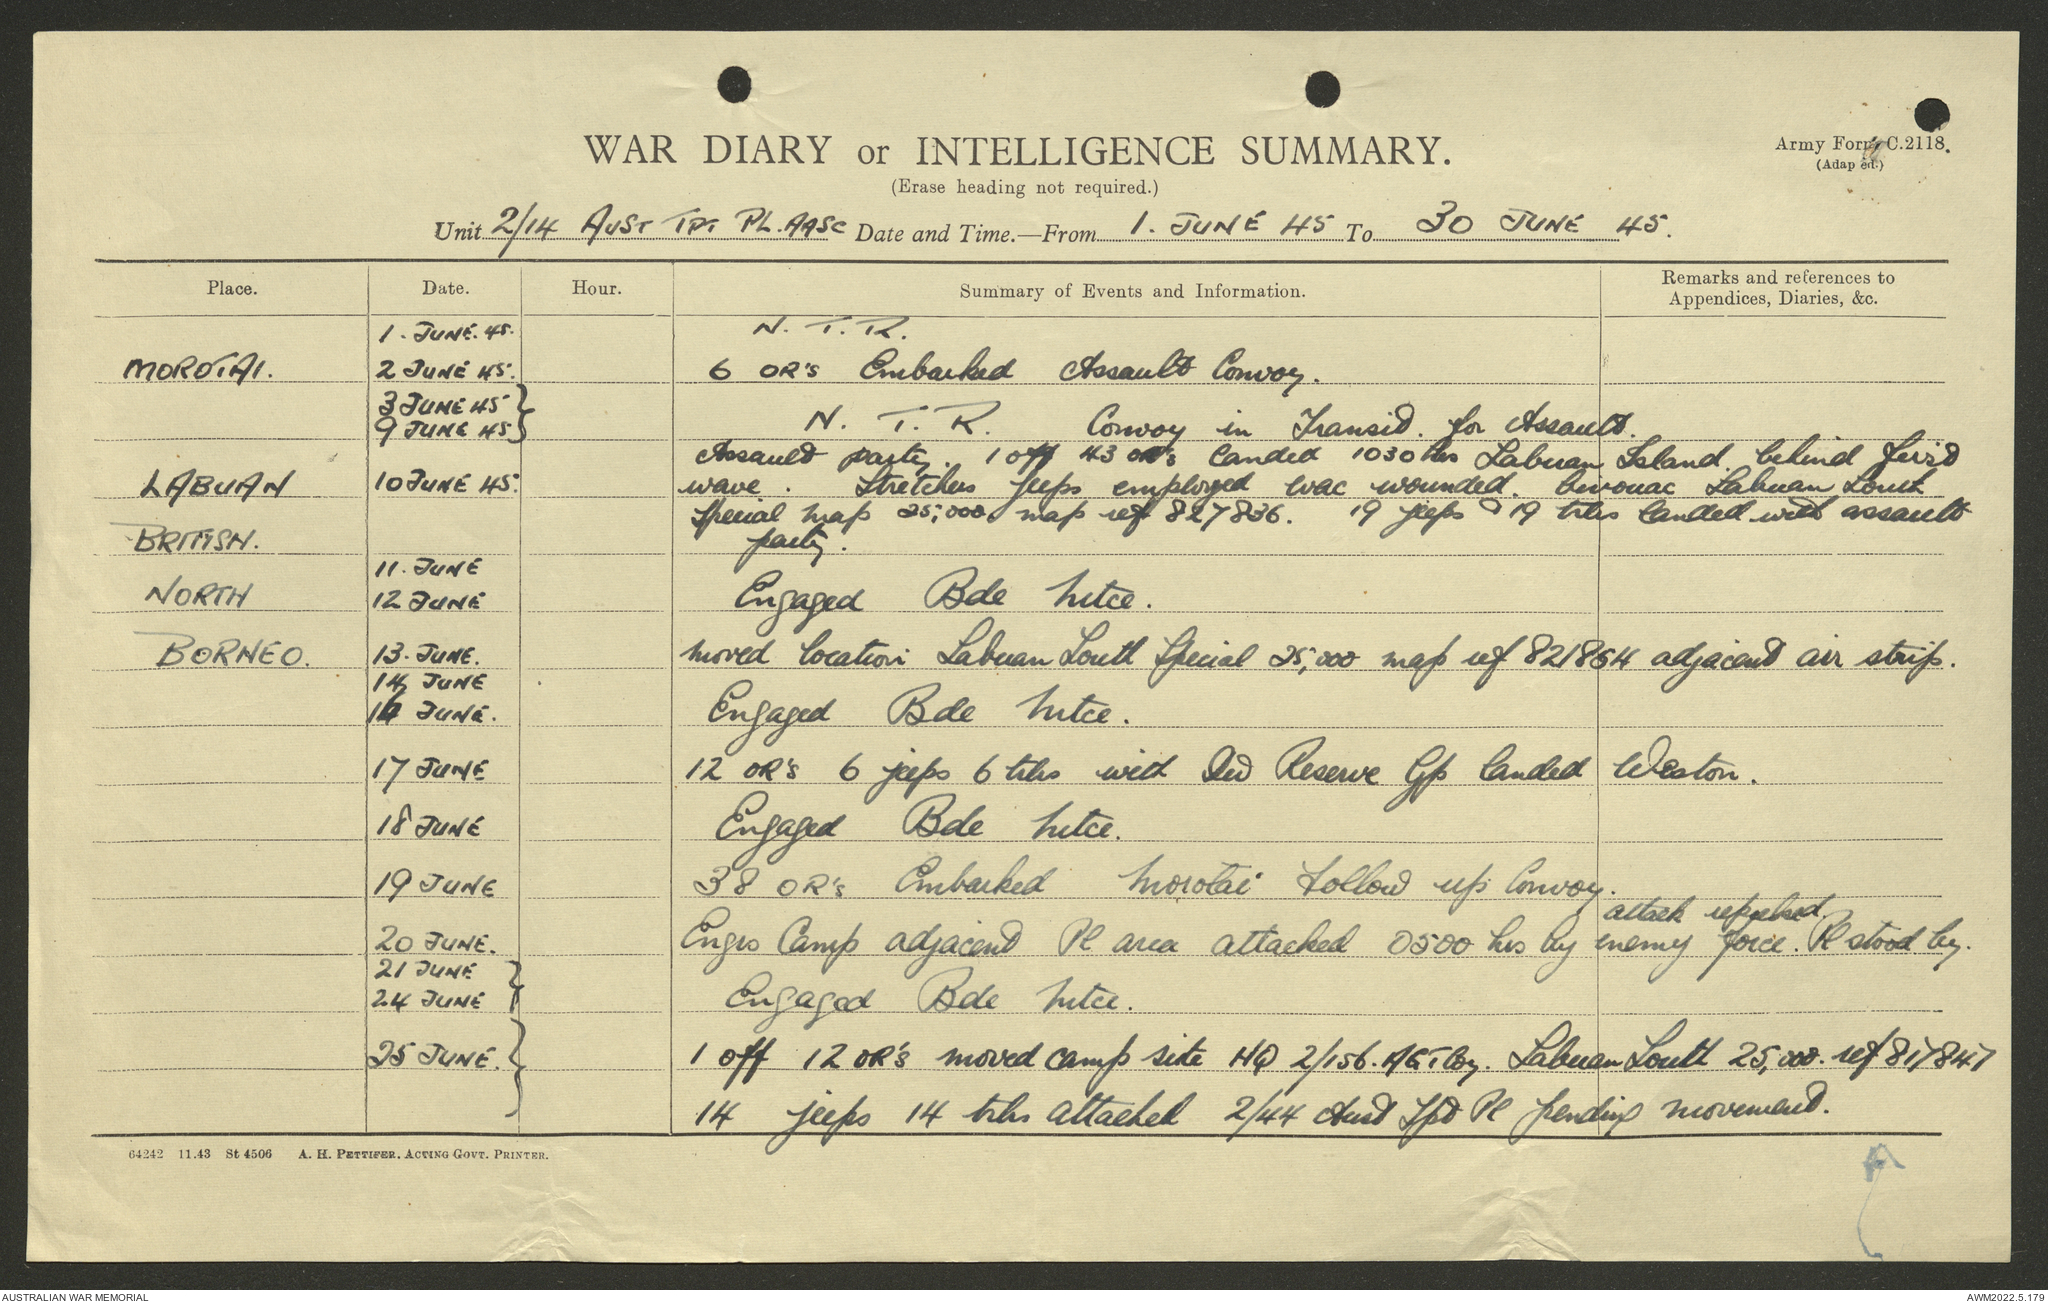 WAR DIARY or INTELLIGENCE SUMMARY.
(Erase heading not required.)
Army Form C.2118.
(Adap ed.)
Unit 2/14 AUST TPT PL. AASC Date and Time.—From 1. JUNE 45 To 30 JUNE 45.
Place. Date. Hour. Summary of Events and Information. Remarks and references to Appendices, Diaries, &c.
1. JUNE. 45. N. T. R.
MOROTAI. 2 JUNE 45. 6 OR's Embarked Assault Convoy.
3 JUNE 45
9 JUNE 45 } N. T. R. Convoy in Transit for Assault.
Assault party. 1 off 43 OR's landed 1030 hrs Labuan Island behind first
LABUAN 10 JUNE 45. wave. Stretcher jeeps employed evac wounded. bivouac Labuan South
Special map 25,000. map ref 827836. 19 jeeps 19 trlrs landed with assault
BRITISH. party.
11. JUNE
NORTH 12 JUNE Engaged Bde Mtce.
BORNEO. 13. JUNE. moved location Labuan South Special 25,000 map ref 821864 adjacent air strip.
14 JUNE
16 JUNE. Engaged Bde Mtce.
17 JUNE 12 OR's 6 jeeps 6 trlrs with Div Reserve Gp landed Weston.
18 JUNE Engaged Bde Mtce.
19 JUNE 38 OR's Embarked Morotai Follow up Convoy.
attack repulsed
20 JUNE. Engrs Camp adjacent Pl area attacked 0500 hrs by enemy force. Pl stood by.
21 JUNE
24 JUNE } Engaged Bde Mtce.
25 JUNE. } 1 off 12 OR's moved camp site HQ 2/156. AGT Coy. Labuan South 25,000. ref 817847
14 jeeps 14 trlrs attached 2/44 Aust Tpt Pl pending movement.
64242 11.43 St 4506 A. H. PETTIFER, ACTING GOVT. PRINTER.
AUSTRALIAN WAR MEMORIAL AWM2022.5.179